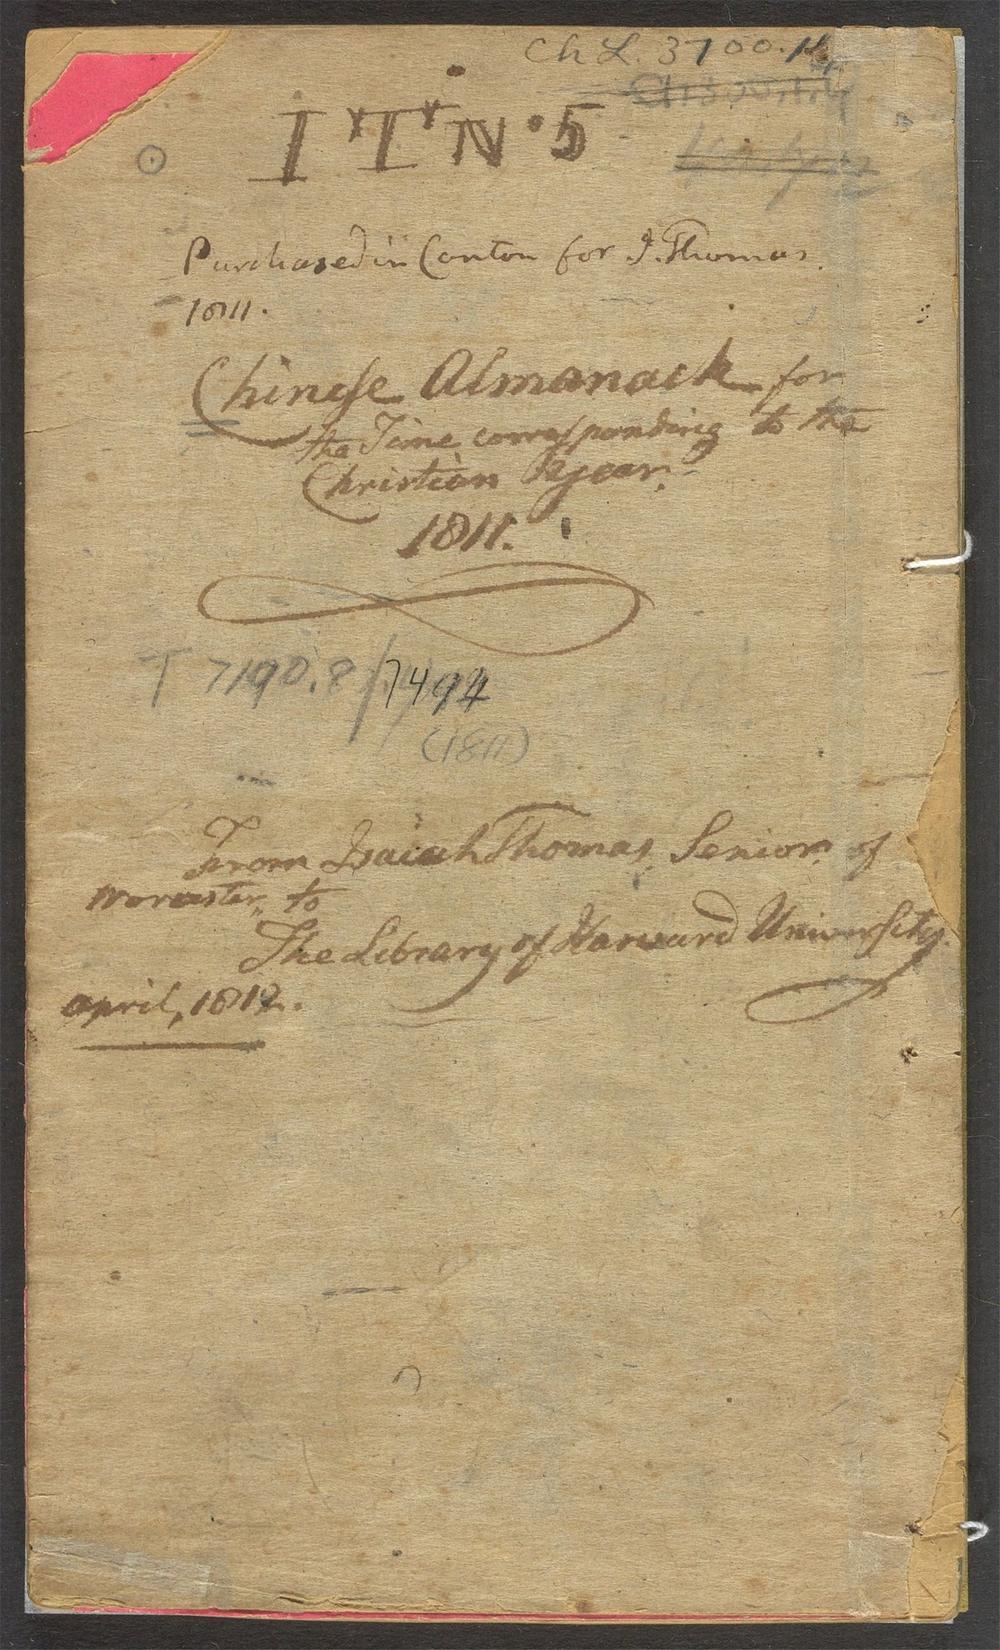 Ch L. 3700.14
I * T * N • 5
Purchased in Canton for I. Thomas.
1811.
Chinese Almanack for
the Time corresponding to the
Christian Year.
1811.
T 7190.8/7494
(1811)
From Isaiah Thomas, Senior of
Worcester, to
The Library of Harvard University.
april, 1812.